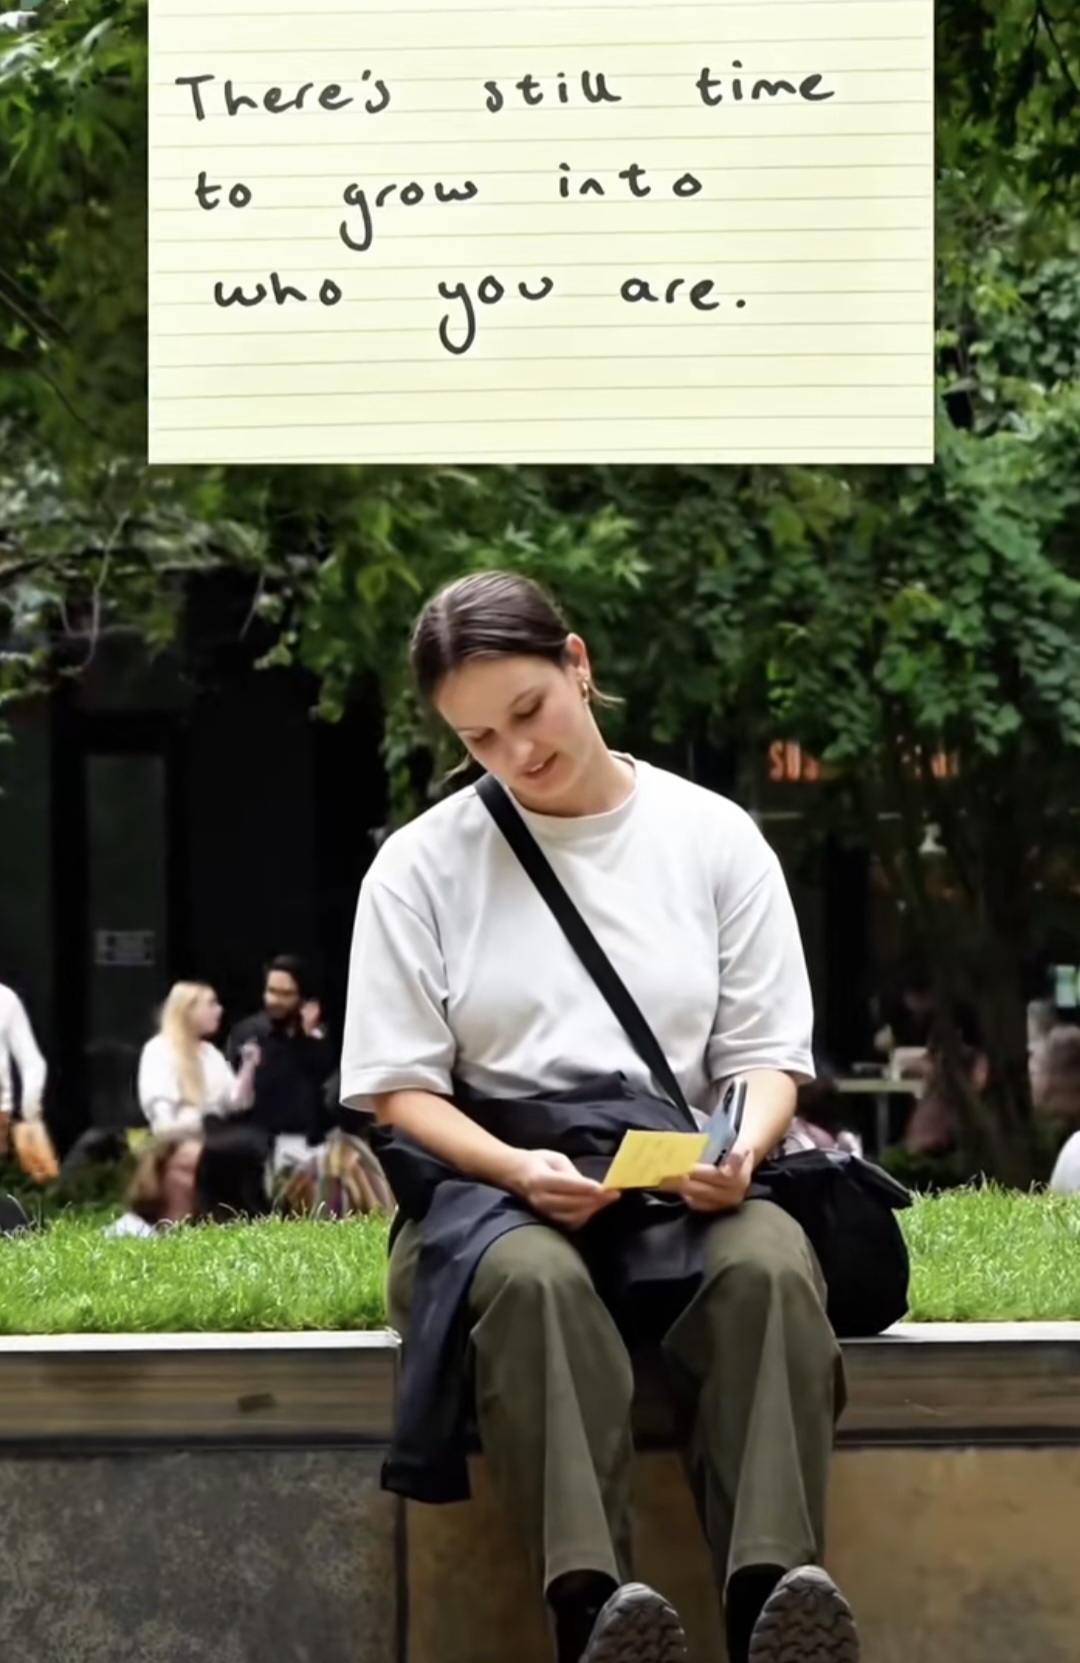 There's still time
to grow into
who you are.